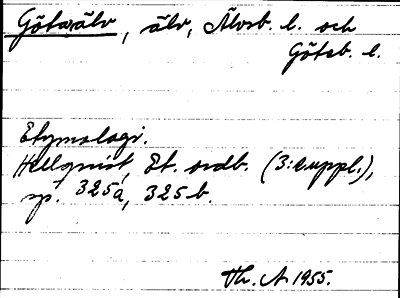 Götaälv, älv, Älvsb. l. och
Göteb. l.
Etymologi.
Hellquist, Et. ordb. (3:e uppl.),
sp. 325a, 325b.
Th. A. 1955.